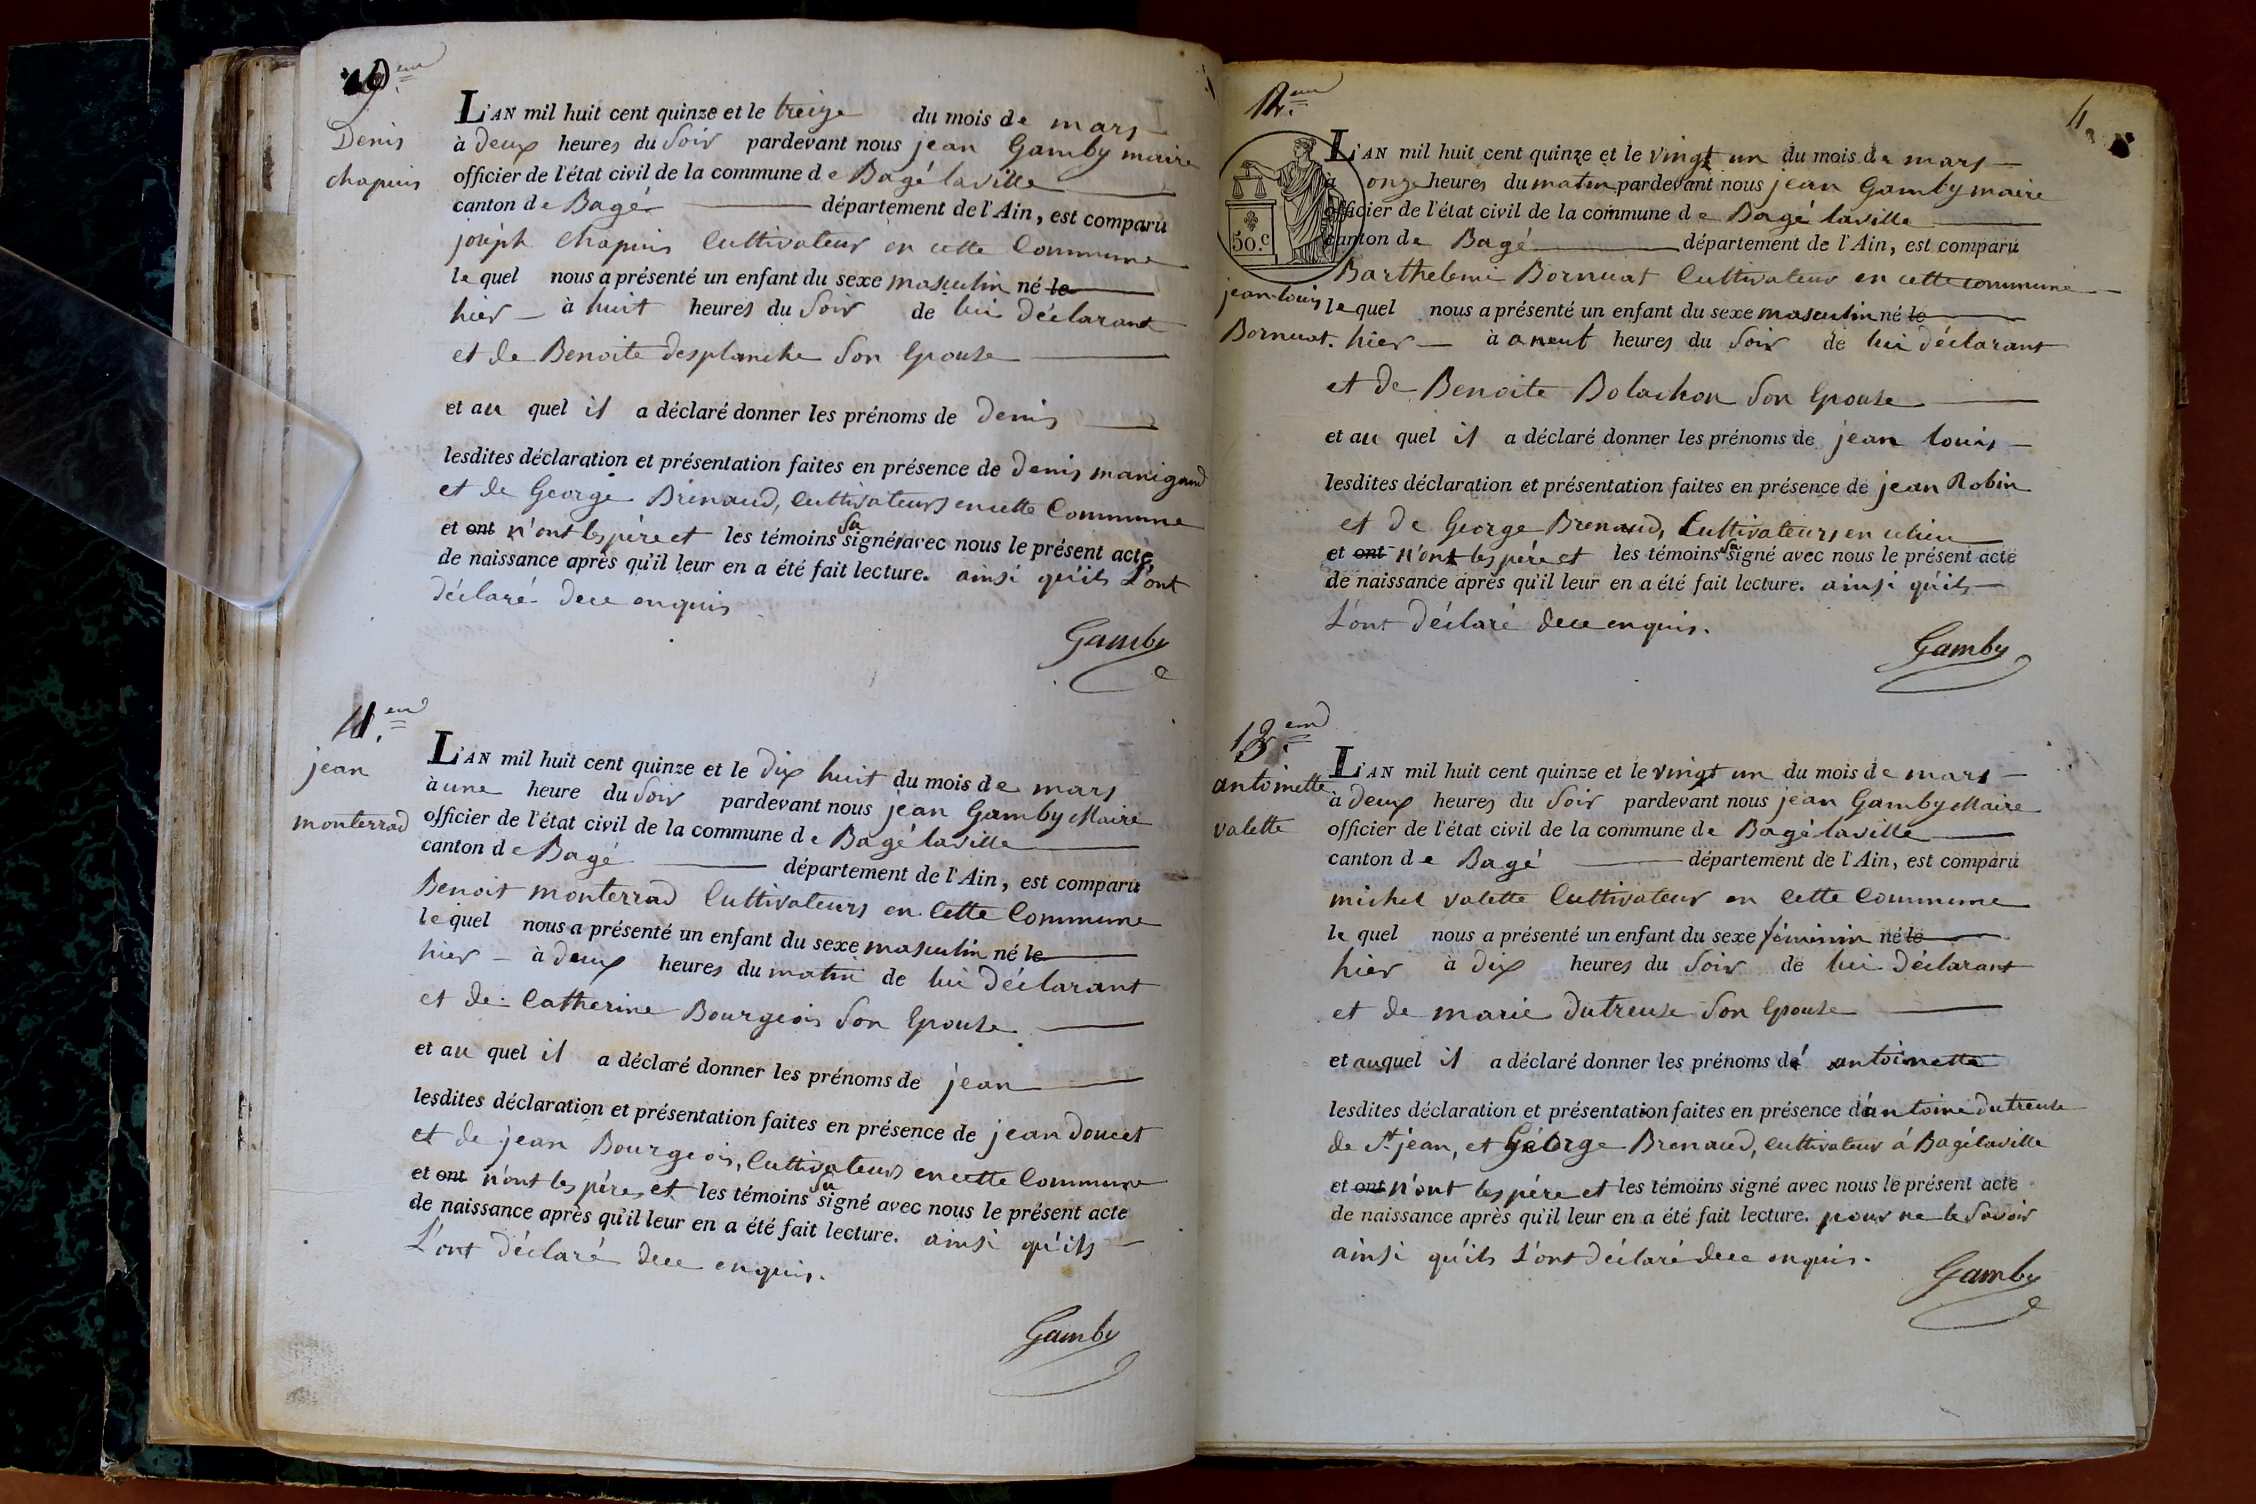 10.em
Denis
chapuis
L'AN mil huit cent quinze et le treize du mois de mars
à deux heures du Soir pardevant nous jean Gamby maire
officier de l'état civil de la commune de Bagé laville
canton de Bagé département de l'Ain, est comparu
joseph chapuis Cultivateur en cette Commune
le quel nous a présenté un enfant du sexe masculin né le
hier à huit heures du Soir de lui déclarant
et de Benoite desplanche Son Epouse
et au quel il a déclaré donner les prénoms de denis
lesdites déclaration et présentation faites en présence de denis manigand
et de George Brenaud, Cultivateurs en cette Commune
et ont n'ont les père et les témoins su signé avec nous le présent acte
de naissance après qu'il leur en a été fait lecture. ainsi qu'ils L'ont
déclaré dece enquis
Gamby
11.em
jean
monterrad
L'AN mil huit cent quinze et le dix huit du mois de mars
à une heure du Soir pardevant nous jean Gamby Maire
officier de l'état civil de la commune de Bagé laville
canton de Bagé département de l'Ain, est comparu
Benoit monterrad Cultivateurs en Cette Commune
le quel nous a présenté un enfant du sexe masculin né le
hier à deux heures du matin de lui déclarant
et de Catherine Bourgeois Son Epouse
et au quel il a déclaré donner les prénoms de jean
lesdites déclaration et présentation faites en présence de jean doucet
et de jean Bourgeois, Cultivateurs en cette Commune
et ont n'ont les père et les témoins su signé avec nous le présent acte
de naissance après qu'il leur en a été fait lecture. ainsi qu'ils
L'ont déclaré dece enquis.
Gamby
4
12.em
50.c
jean-louis
Bornuat.
L'AN mil huit cent quinze et le vingt un du mois de mars
à onze heures du matin pardevant nous jean Gamby maire
officier de l'état civil de la commune de Bagé laville
canton de Bagé département de l'Ain, est comparu
Barthelemi Bornuat Cultivateur en cette commune
le quel nous a présenté un enfant du sexe masculin né le
hier à a neuf heures du Soir de lui déclarant
et de Benoite Bolachon Son Epouse
et au quel il a déclaré donner les prénoms de jean louis
lesdites déclaration et présentation faites en présence de jean Robin
et de George Brenaud, Cultivateurs en celieu
et ont n'ont les père et les témoins su signé avec nous le présent acte
de naissance après qu'il leur en a été fait lecture. ainsi qu'ils
L'ont déclaré dece enquis.
Gamby
13.em
antoinette
valette
L'AN mil huit cent quinze et le vingt un du mois de mars
à deux heures du Soir pardevant nous jean Gamby Maire
officier de l'état civil de la commune de Bagé laville
canton de Bagé département de l'Ain, est comparu
michel valette Cultivateur en cette Commune
le quel nous a présenté un enfant du sexe féminin né le
hier à dix heures du Soir de lui déclarant
et de marie dutreuse Son Epouse
et auquel il a déclaré donner les prénoms d' antoinette
lesdites déclaration et présentation faites en présence d'antoine dutreuse
de St jean, et George Brenaud, cultivateur á Bagélaville
et ont n'ont les père et les témoins signé avec nous le présent acte
de naissance après qu'il leur en a été fait lecture. pour ne le Savoir
ainsi qu'ils L'ont déclaré dece enquis.
Gamby